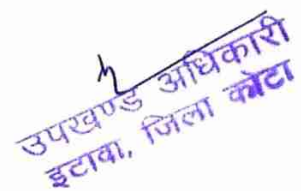 उपखण्ड अधिकारी
इटावा, जिला कोटा